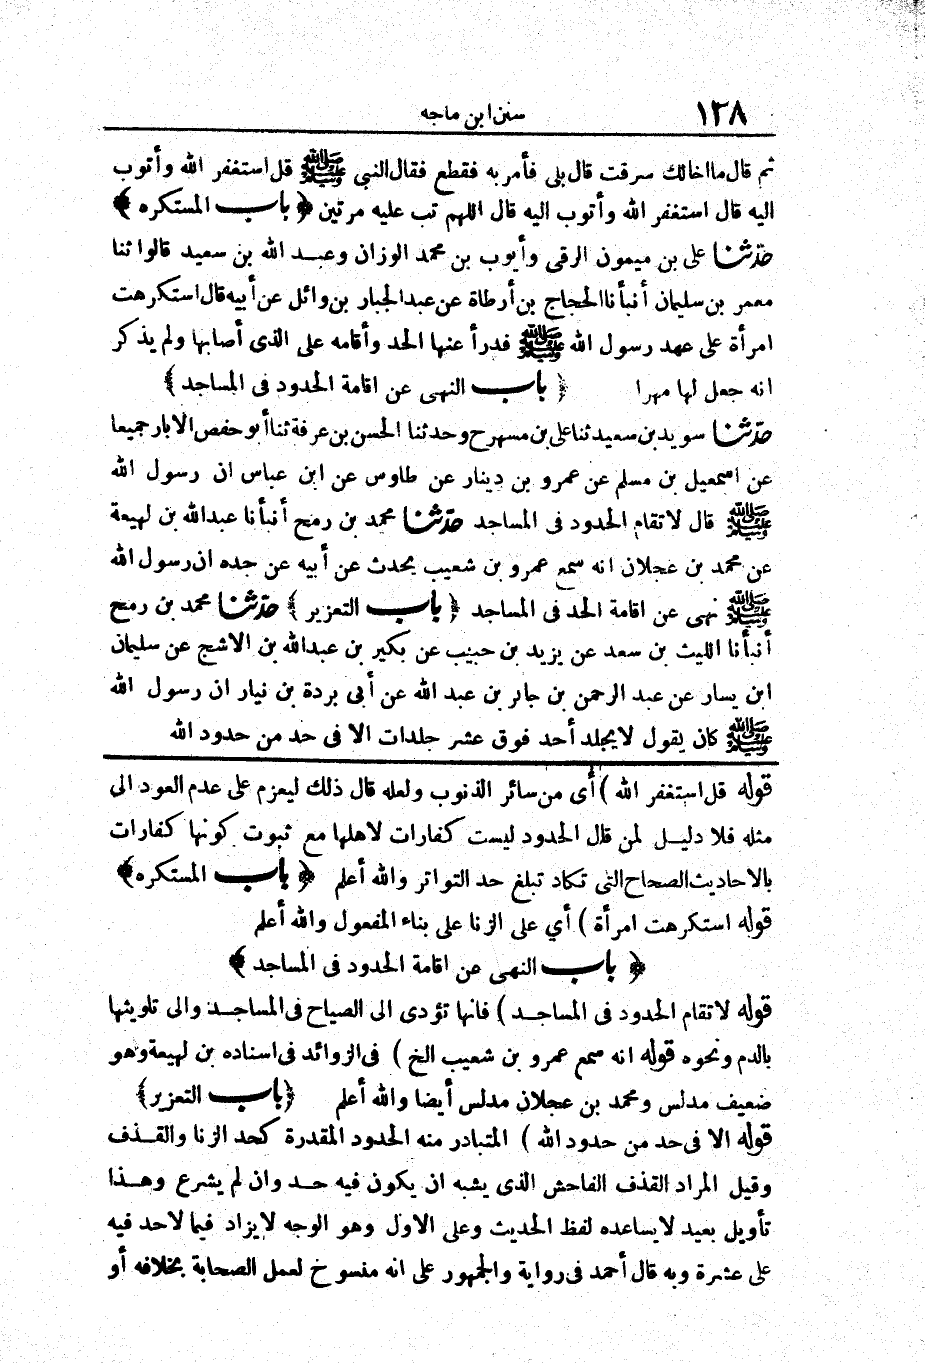 ١٣٨ سنن ابن ماجه
ثم قال ما اخالك سرقت قال بلى فأمر به فقطع فقال النبي ﷺ قل استغفر الله وأتوب
اليه قال استغفر الله وأتوب اليه قال اللهم تب عليه مرتين ﴿ باب المستكره ﴾
حدثنا على بن ميمون الرقى وأيوب بن محمد الوزان وعبد الله بن سعيد قالوا ثنا
معمر بن سليمان أنبأنا الحجاج بن أرطاة عن عبد الجبار بن وائل عن أبيه قال استكرهت
امرأة على عهد رسول الله ﷺ فدرأ عنها الحد وأقامه على الذى أصابها ولم يذكر
انه جعل لها مهرا ﴿ باب النهى عن اقامة الحدود فى المساجد ﴾
حدثنا سويد بن سعيد ثنا على بن مسهر ح وحدثنا الحسن بن عرفة ثنا أبو حفص الابار جميعا
عن اسمعيل بن مسلم عن عمرو بن دينار عن طاوس عن ابن عباس ان رسول الله
ﷺ قال لا تقام الحدود فى المساجد حدثنا محمد بن رمح أنبأنا عبدالله بن لهيعة
عن محمد بن عجلان انه سمع عمرو بن شعيب يحدث عن أبيه عن جده ان رسول الله
ﷺ نهى عن اقامة الحد فى المساجد ﴿ باب التعزير ﴾ حدثنا محمد بن رمح
أنبأنا الليث بن سعد عن يزيد بن حبيب عن بكير بن عبدالله بن الاشج عن سليمان
ابن يسار عن عبد الرحمن بن جابر بن عبد الله عن أبى بردة بن نيار ان رسول الله
ﷺ كان يقول لا يجلد أحد فوق عشر جلدات الا فى حد من حدود الله
قوله قل استغفر الله ) أى من سائر الذنوب ولعله قال ذلك ليعزم على عدم العود الى
مثله فلا دليل لمن قال الحدود ليست كفارات لاهلها مع ثبوت كونها كفارات
بالاحاديث الصحاح التى تكاد تبلغ حد التواتر والله أعلم ﴿ باب المستكره ﴾
قوله استكرهت امرأة ) أي على الزنا على بناء المفعول والله أعلم
﴿ باب النهى عن اقامة الحدود فى المساجد ﴾
قوله لا تقام الحدود فى المساجد ) فانها تؤدى الى الصياح فى المساجد والى تلويثها
بالدم ونحوه قوله انه سمع عمرو بن شعيب الخ ) فى الزوائد فى اسناده بن لهيعة وهو
ضعيف مدلس ومحمد بن عجلان مدلس أيضا والله أعلم ﴿ باب التعزير ﴾
قوله الا فى حد من حدود الله ) المتبادر منه الحدود المقدرة كحد الزنا والقذف
وقيل المراد القذف الفاحش الذى يشبه ان يكون فيه حد وان لم يشرع وهذا
تأويل بعيد لا يساعده لفظ الحديث وعلى الاول وهو الوجه لا يزاد فيما لاحد فيه
على عشرة وبه قال أحمد فى رواية والجمهور على انه منسوخ لعمل الصحابة بخلافه أو